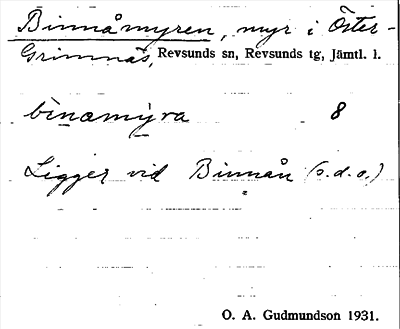 Binnåmyren, myr i Öster-
Grimnäs, Revsunds sn, Revsunds tg, Jämtl. l.
binamyra 8
Ligger vid Binnån (s.d.o.)
O. A. Gudmundson 1931.